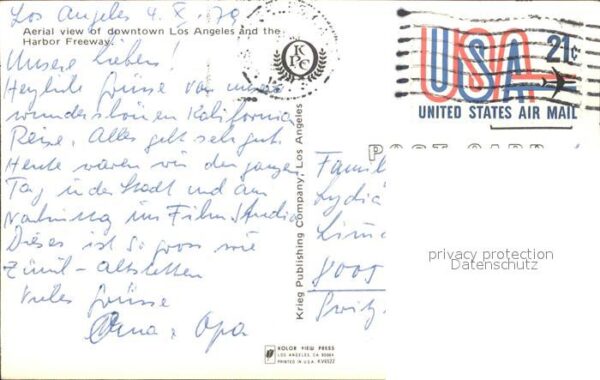 Los Angeles 4. X. 79
Aerial view of downtown Los Angeles and the
Harbor Freeway.
Unsere Lieben!
Herzliche Grüsse von unserer
wunderschönen Kalifornia
Reise. Alles geht sehr gut.
Heute waren wir den ganzen
Tag in der Stadt und am
Nachmittag im Film Studio
Dieses ist so gross wie
Zürich - Altstetten
Viele Grüsse
Oma + Opa
KPC
Krieg Publishing Company, Los Angeles
KOLOR VIEW PRESS
LOS ANGELES, CA 90064
PRINTED IN U.S.A. KV6522
USA 21c
UNITED STATES AIR MAIL
POST CARD
Famil
Lydia
8005
privacy protection
Datenschutz